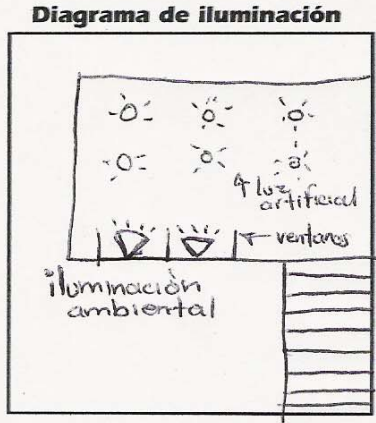 Diagrama de iluminación
luz
artificial
ventanas
iluminación
ambiental